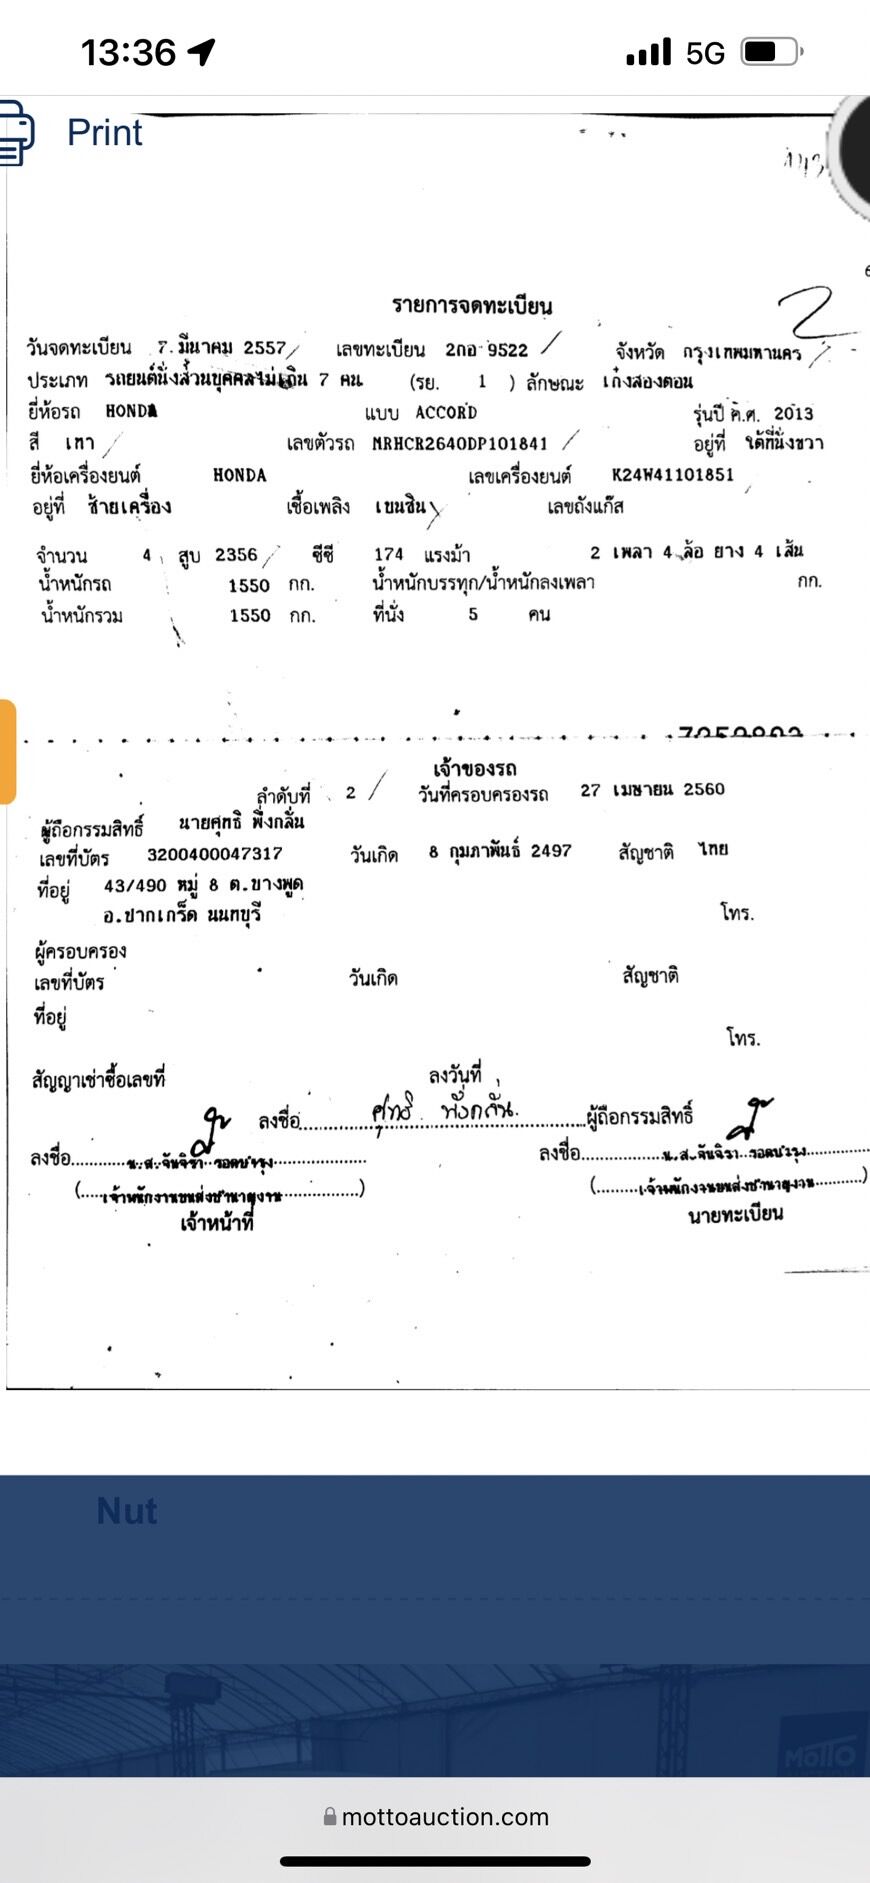 13:36 5G
Print
รายการจดทะเบียน
2
วันจดทะเบียน 7 มีนาคม 2557 เลขทะเบียน 2กอ 9522 จังหวัด กรุงเทพมหานคร
ประเภท รถยนต์นั่งส่วนบุคคลไม่เกิน 7 คน (รย. 1 ) ลักษณะ เก๋งสองตอน
ยี่ห้อรถ HONDA แบบ ACCORD รุ่นปี ค.ศ. 2013
สี เทา เลขตัวรถ MRHCR2640DP101841 อยู่ที่ ใต้ที่นั่งขวา
ยี่ห้อเครื่องยนต์ HONDA เลขเครื่องยนต์ K24W41101851
อยู่ที่ ซ้ายเครื่อง เชื้อเพลิง เบนซิน เลขถังแก๊ส
จำนวน 4 สูบ 2356 ซีซี 174 แรงม้า 2 เพลา 4 ล้อ ยาง 4 เส้น
น้ำหนักรถ 1550 กก. น้ำหนักบรรทุก/น้ำหนักลงเพลา กก.
น้ำหนักรวม 1550 กก. ที่นั่ง 5 คน
เจ้าของรถ
ลำดับที่ 2 วันที่ครอบครองรถ 27 เมษายน 2560
ผู้ถือกรรมสิทธิ์ นายศุทธิ พึ่งกลั่น
เลขที่บัตร 3200400047317 วันเกิด 8 กุมภาพันธ์ 2497 สัญชาติ ไทย
ที่อยู่ 43/490 หมู่ 8 ต.บางพูด
อ.ปากเกร็ด นนทบุรี โทร.
ผู้ครอบครอง
เลขที่บัตร วันเกิด สัญชาติ
ที่อยู่
โทร.
สัญญาเช่าซื้อเลขที่ ลงวันที่
ลงชื่อ ศุทธิ พึ่งกลั่น ผู้ถือกรรมสิทธิ์
ลงชื่อ น.ส.จันจิรา รอดบำรุง ลงชื่อ น.ส.จันจิรา รอดบำรุง
(เจ้าพนักงานขนส่งชำนาญงาน) (เจ้าพนักงานขนส่งชำนาญงาน)
เจ้าหน้าที่ นายทะเบียน
Nut
MOTTO
mottoauction.com